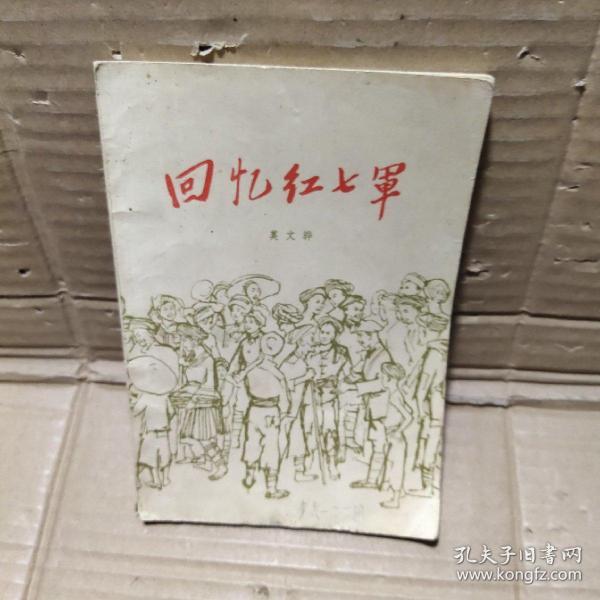 回忆红七軍
莫文骅
孔夫子旧書网
www.kongfz.com